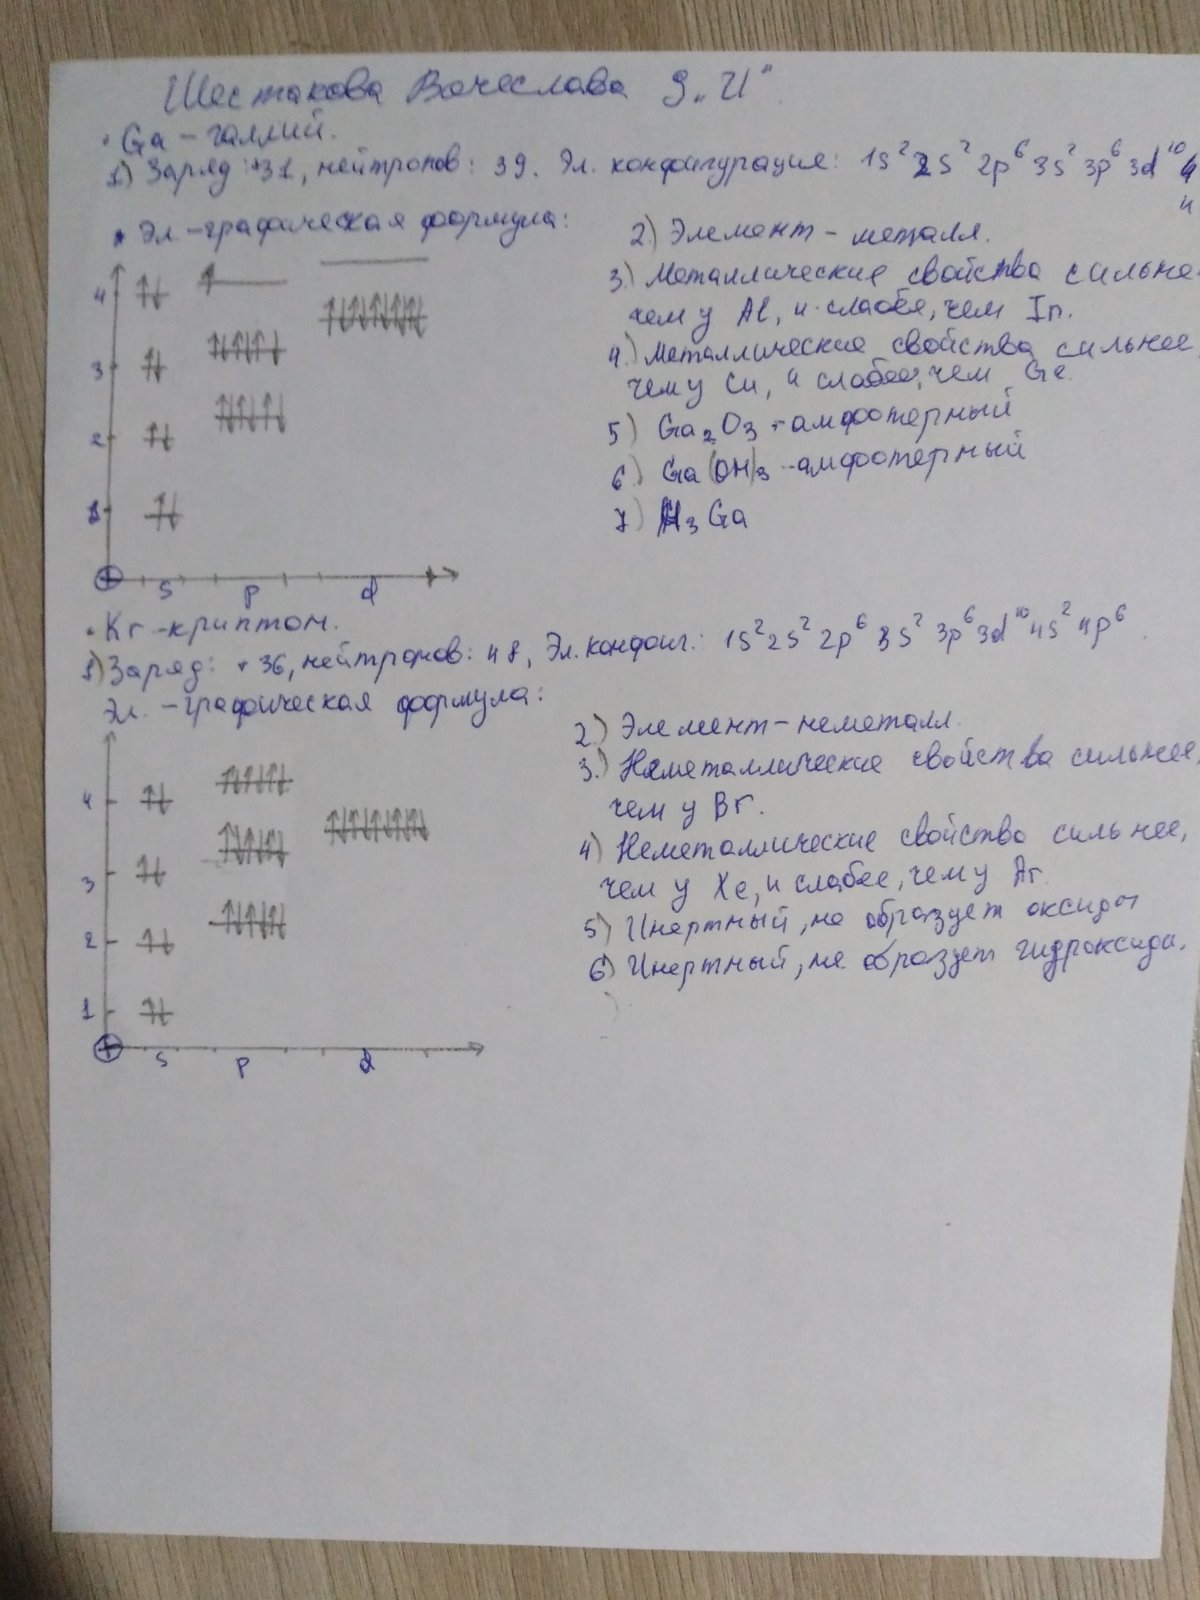 Шестакова Вячеслава 9 „И"
• Ga – галлий.
1) Заряд: +31, нейтронов: 39. Эл. конфигурация: 1s² 2s² 2p⁶ 3s² 3p⁶ 3d¹⁰ 4
4
• Эл-графическая формула:
4
3
2
1
+ s p d
2) Элемент – металл.
3.) Металлические свойства сильне
чем у Al, и слабее, чем In.
4.) Металлические свойства сильнее
чем у Cu, и слабее, чем Ge.
5) Ga₂O₃ - амфотерный
6.) Ga(OH)₃ - амфотерный
7) H₃Ga
• Kr - криптон.
1) Заряд: +36, нейтронов: 48, Эл. конфиг.: 1s² 2s² 2p⁶ 3s² 3p⁶ 3d¹⁰ 4s² 4p⁶
Эл. - графическая формула:
4
3
2
1
+ s p d
2.) Элемент – неметалл.
3.) Неметаллические свойства сильнее,
чем у Br.
4) Неметаллические свойства сильнее,
чем у Xe, и слабее, чем у Ar
5) Инертный, не образует оксиды
6) Инертный, не образует гидроксида.